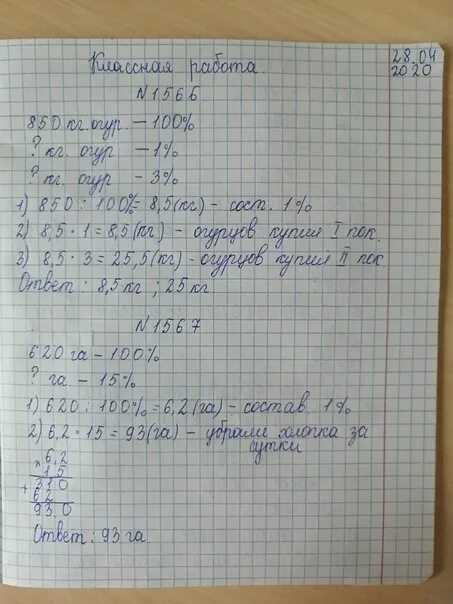 28.04
Классная работа 2020
№1566
850 кг. огур. – 100%
? кг. огур – 1%
? кг. огур – 3%
1) 850 : 100% = 8,5(кг) – сост. 1%
2) 8,5 · 1 = 8,5(кг) – огурцов купил I пок.
3) 8,5 · 3 = 25,5(кг) – огурцов купил II пок.
Ответ : 8,5 кг ; 25 кг.
№1567
620 га – 100%
? га – 15%
1) 620 : 100% = 6,2(га) – состав. 1%
2) 6,2 · 15 = 93(га) – убрали хлопка за
сутки
6,2
× 15
310
+ 62
93,0
Ответ : 93 га